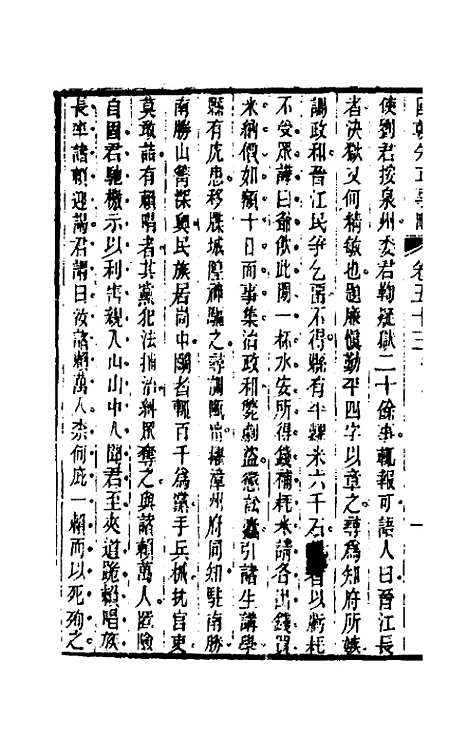 國朝先正事略 卷五十三 一
使劉君按泉州委君鞫疑獄二十餘事輒報可語人曰晉江長
者決獄又何精敏也題廉愼勤平四字以章之尋爲知府所嫉
調政和晉江民爭乞畱不得縣有平糶米六千石 者以虧耗
不受眾譁曰爺飲此閒一杯水安所得錢補耗米請各出錢買
米納償如額十日而事集治政和斃劇盜懲訟蠹引諸生講學
縣有虎患移牒城隍神驅之尋調 漳州府同知駐南勝
南勝山箐深奧民族居閧鬥者輒百千爲黨手兵械抗官吏
莫敢詰有賴唱者其黨犯法捕治糾眾奪之與諸賴萬人匿險
自固君馳檄示以利害親入山山中人聞君至夾道跪賴唱族
長率諸賴迎謁君謂曰汝諸賴萬人柰何庇一賴而以死殉之